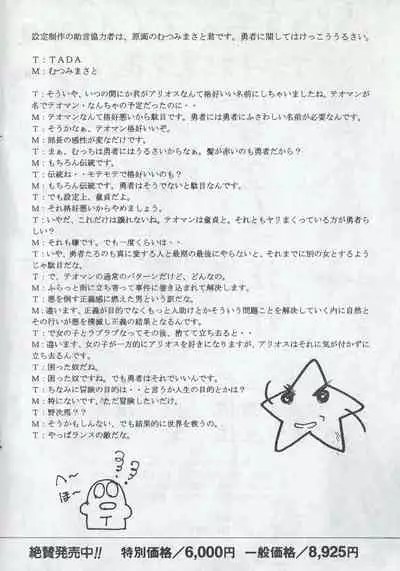 設定制作の助言協力者は、原画のむつみまさと君です。勇者に関してはけっこううるさい。
T：TADA
M：むつみまさと
T：そういや、いつの間にか君がアリオスなんて格好いい名前にしちゃいましたね。テオマンが
名でテオマン・なんちゃの予定だったのに・・
M：テオマンなんて格好悪いから駄目です。勇者には勇者にふさわしい名前が必要なんです。
T：そうかなぁ、テオマン格好いいぞ。
M：部長の感性が変なだけです。
T：まぁ、むっちは勇者にはうるさいからなぁ。髪が赤いのも勇者だから？
M：もちろん伝統です。
T：伝統ね・・モテモテで格好いいのも？
M：もちろん伝統です。勇者はそうでないと駄目なんです。
T：でも設定上、童貞だよ。
M：それ格好悪いからやめましょう。
T：いやだ、これだけは譲れないね。テオマンは童貞と、それともヤリまくっている方が勇者ら
しい？
M：それも嫌です。でも一度くらいは・・
T：いや、勇者たるのも真に愛する人と最期の最後にやらないと、それまでに別の女とするよう
じゃ駄目だな。
T：で、テオマンの通常のパターンだけど、どんなの。
M：ふらっと街に立ち寄って事件に巻き込まれて解決します。
T：悪を倒す正義感に燃えた男という訳だな。
M：違います、正義が目的でなくもっと人助けとかそういう問題ことを解決していく内に自然と
その行いが悪を撲滅し正義の結果となるんです。
T：で女の子とラブラブなってその後、捨てて立ち去ると・・
M：違います、女の子が一方的にアリオスを好きになりますが、アリオスはそれに気が付かずに
立ち去るんです。
T：困った奴だね。
M：困った奴ですね。でも勇者はそれでいいんです。
T：ちなみに冒険の目的は・・と言うか人生の目的とかは？
M：特にないです。ただ冒険したいだけ。
T：野次馬？？
M：そうかもしんない、でも結果的に世界を救うの。
T：やっぱランスの敵だな。
へ〜
ほ〜
T
絶賛発売中!! 特別価格／6,000円 一般価格／8,925円